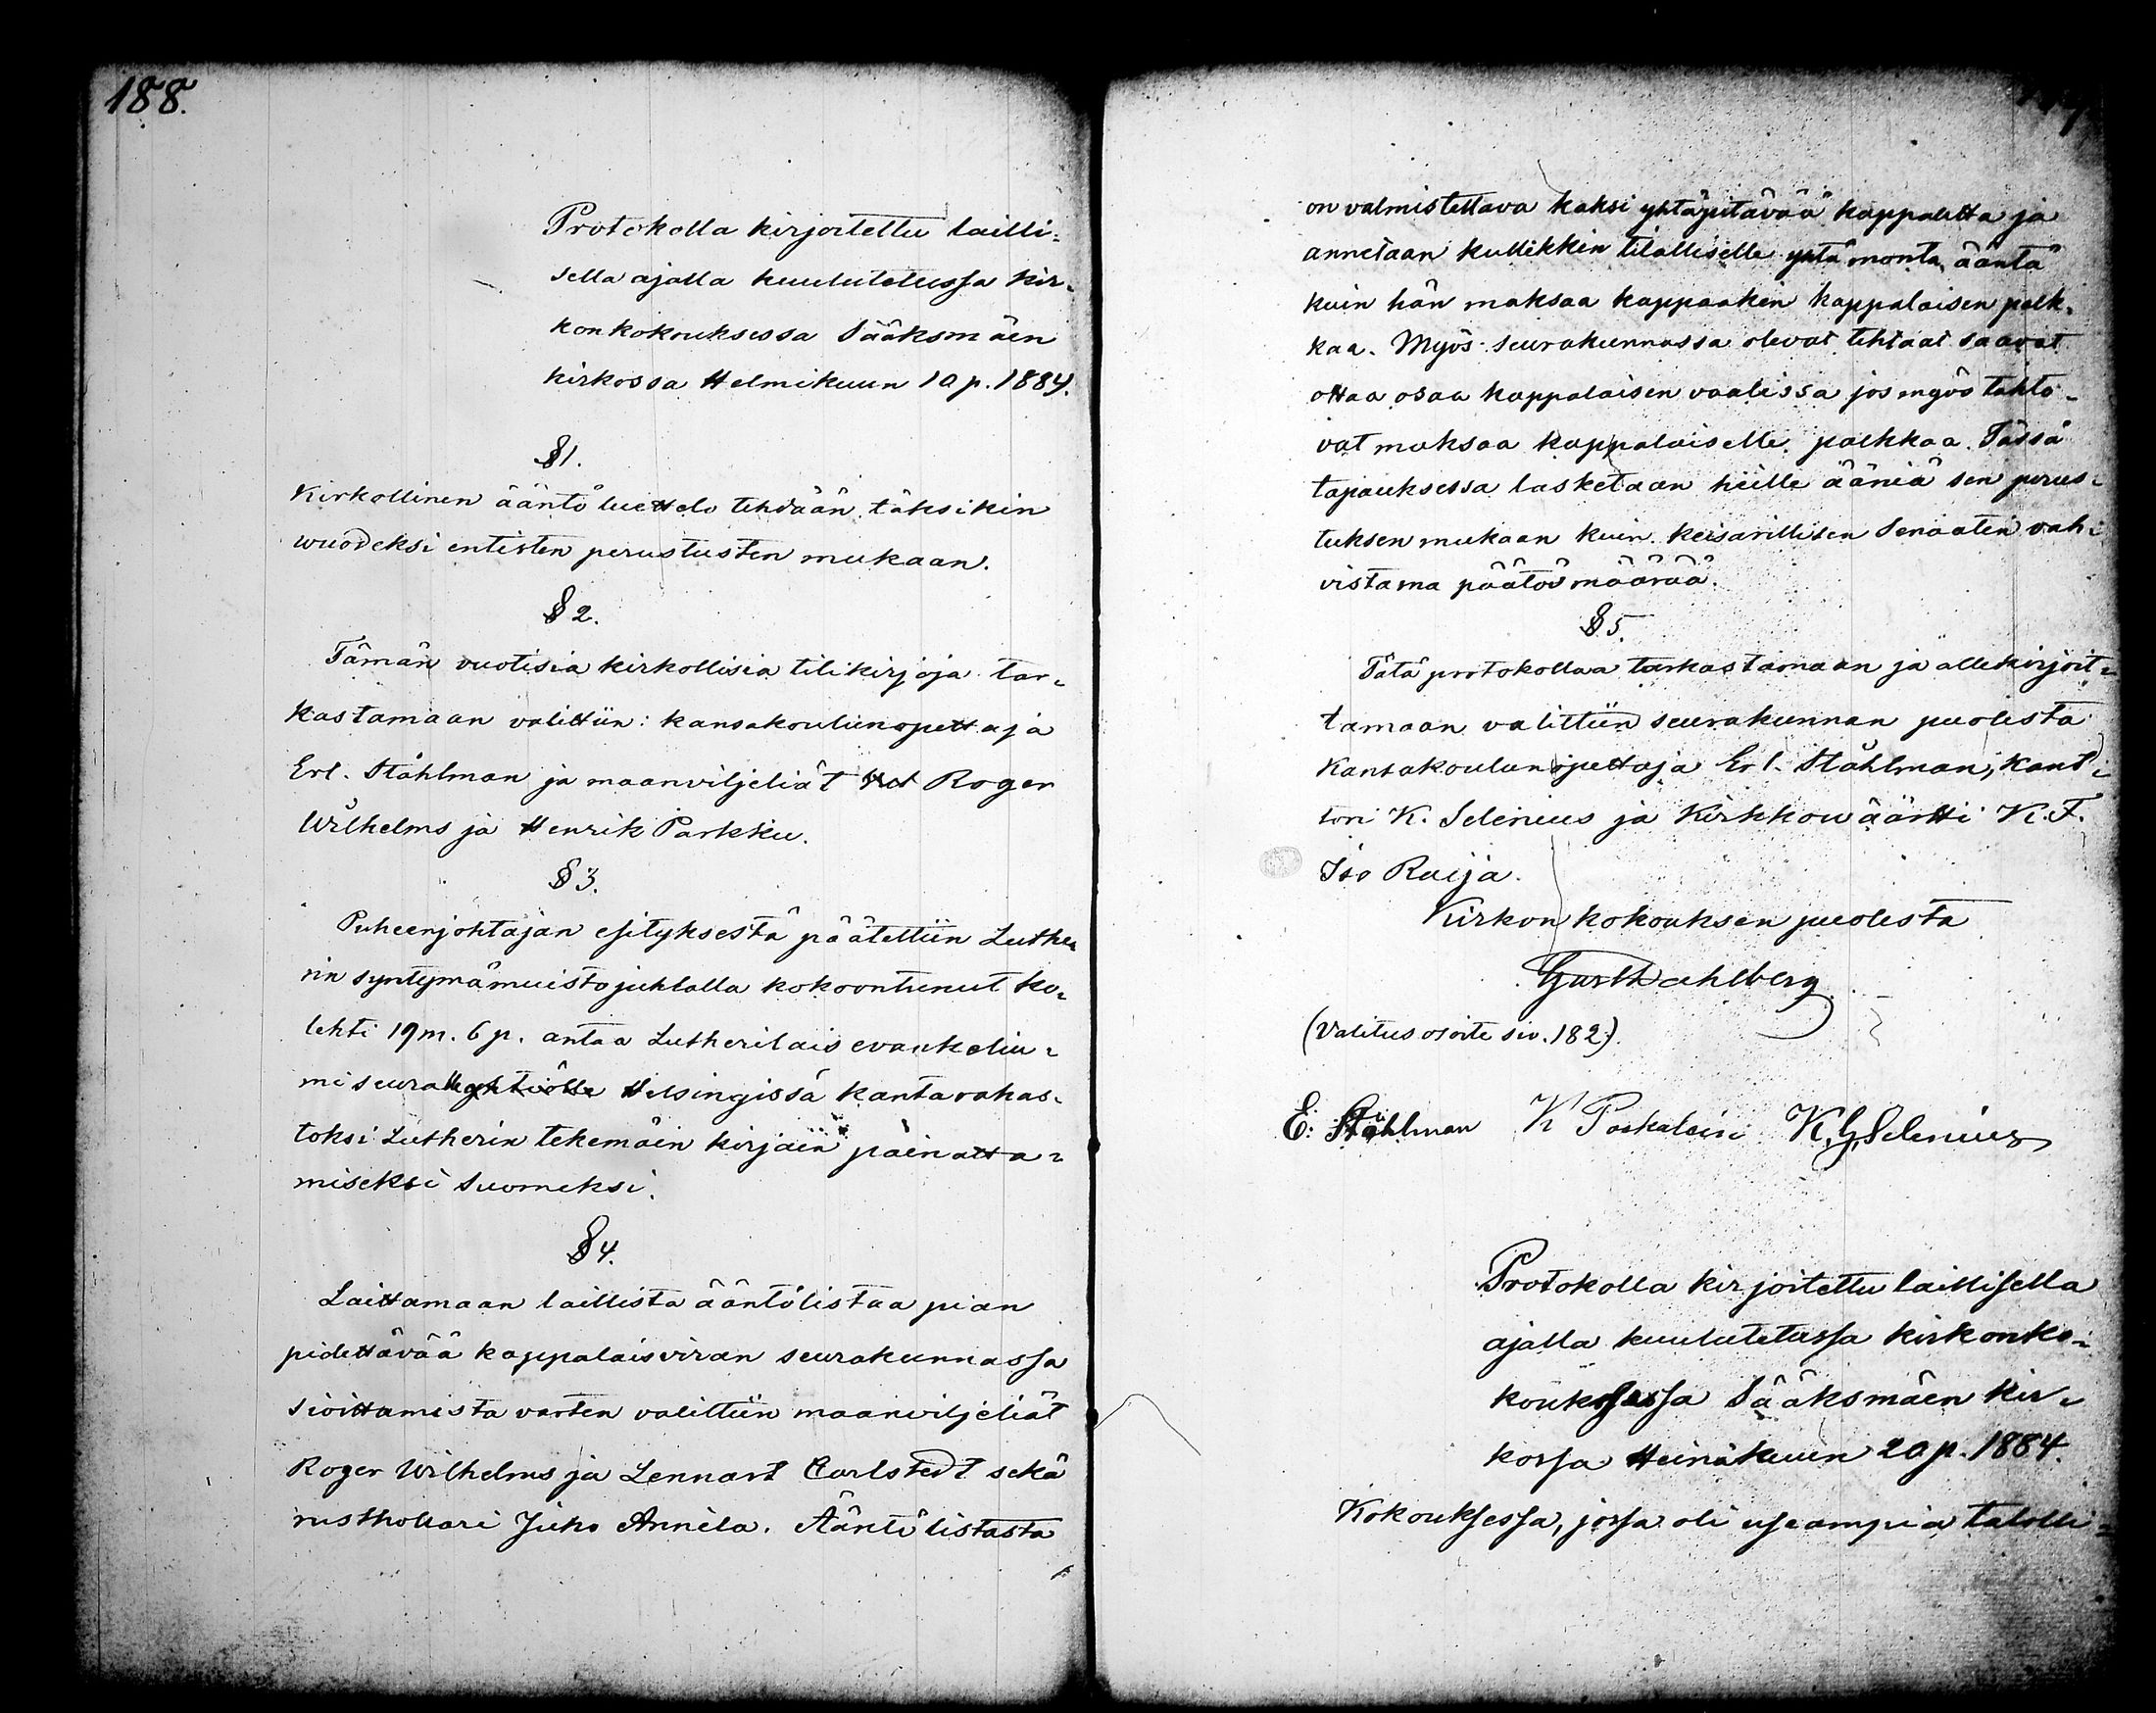 188.
Protokolla kirjoitettu lailli-
sella ajalla kuulutetussa kir-
konkokouksessa Sääksmäen
kirkossa Helmikuun 10 p. 1884.
§ 1.
Kirkollinen ääntöluettelo tehdään täksikin
wuodeksi entisten perustusten mukaan.
§ 2.
Tämän vuotisia kirkollisia tilikirjoja tar-
kastamaan valittiin: kansakoulunopettaja
Erl. Ståhlman ja maanviljeliät Roger
Wilhelms ja Henrik Parkku.
§ 3.
Puheenjohtajan esityksestä päätettiin Luthe
rin syntymämuistojuhlalla kokoontunut ko-
lehti 19 m. 6 p. antaa Lutherilais evankeliu-
mi seuralle yhtiölle Helsingissä kantarahas-
toksi Lutherin tekemäin kirjain painatta-
miseksi Suomeksi.
§ 4.
Laittamaan laillista ääntölistaa pian
pidettävää kappalaisviran seurakunnassa
sioittamista varten valittiin maanviljeliät
Roger Wilhelms ja Lennart Carlstedt sekä
rusthollari Juho Annila. Ääntölistasta
on valmistettava kaksi yhtäpitävää kappaletta ja
annetaan kullekkin tilalliselle yhtä monta ääntä
kuin hän maksaa kappaakin kappalaisen palk-
kaa. Myös seurakunnassa olevat tehtaat saavat
ottaa osaa kappalaisen vaalissa jos myös tahto-
vat maksaa kappalaiselle palkkaa. Tässä
tapauksessa lasketaan heille ääniä sen perus-
tuksen mukaan kuin keisarillisen Senaatin vah-
vistama päätös määrää.
§ 5.
Tätä protokollaa tarkastamaan ja allekirjoit-
tamaan valittiin seurakunnan puolesta
Kansakoulunopettaja Erl. Ståhlman, kant-
tori K. Selenius ja Kirkkowäärtti K. F.
Iso Raija.
Kirkon kokouksen puolesta
Gust Dahlberg
(Valitus osoite siv. 182).
E. Ståhlman K K. G. Selenius
Protokolla kirjoitettu laillisella
ajalla kuulutetussa kirkonko-
kouksessa Sääksmäen kir-
kossa Heinäkuun 20 p. 1884.
Kokouksessa, jossa oli useampia talolli-